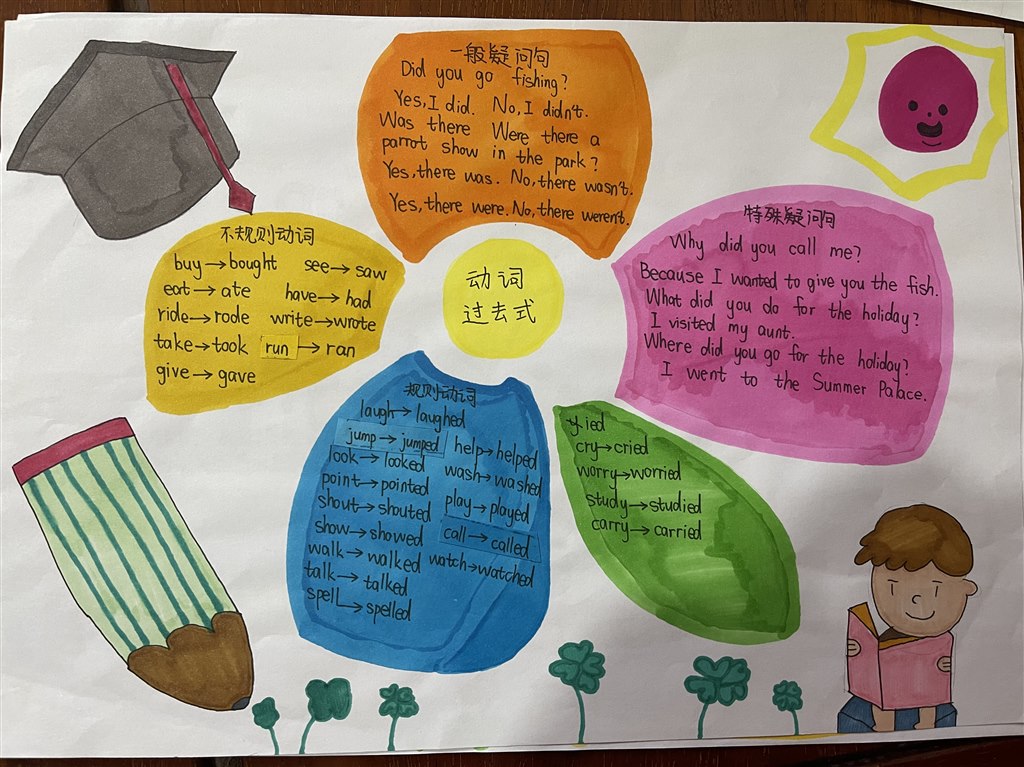 一般疑问句
Did you go fishing?
Yes, I did. No, I didn't.
Was there Were there a
parrot show in the park?
Yes, there was. No, there wasn't.
Yes, there were. No, there weren't.
动词
过去式
不规则动词
buy→bought see→saw
eat→ate have→had
ride→rode write→wrote
take→took run→ran
give→gave
特殊疑问句
Why did you call me?
Because I wanted to give you the fish.
What did you do for the holiday?
I visited my aunt.
Where did you go for the holiday?
I went to the Summer Palace.
规则动词
laugh→laughed
jump→jumped
look→looked
point→pointed
shout→shouted
show→showed
walk→walked
talk→talked
spell→spelled
help→helped
wash→washed
play→played
call→called
watch→watched
y.ied
cry→cried
worry→worried
study→studied
carry→carried